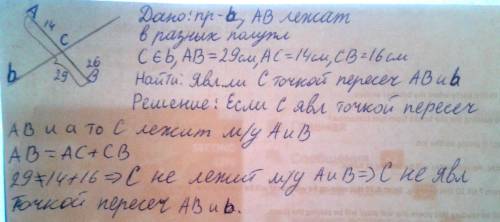 A
14
C
b
29
26
B
Дано: пр-b, AB лежат
в разных полупл
C∈b, AB=29см, AC=14см, CB=16см
Найти: Явл ли C точкой пересеч AB и b
Решение: Если C явл точкой пересеч
AB и a то C лежит м/у A и B
AB=AC+CB
29≠14+16 ⇒ C не лежит м/у A и B ⇒ C не явл
точкой пересеч AB и b.